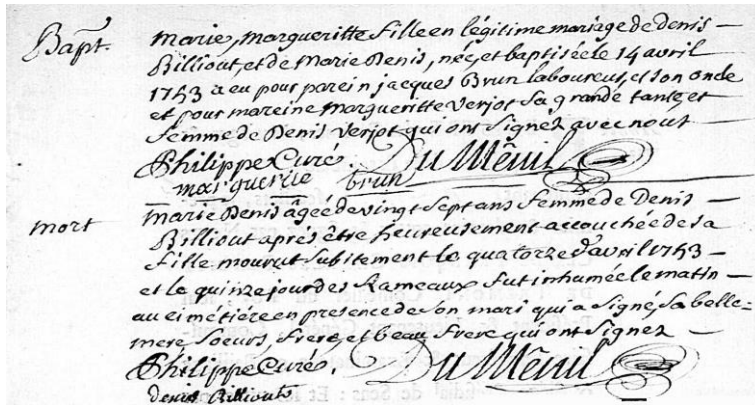 Bapt. marie, margueritte fille en légitime mariage de denis
Billiout, et de Marie Denis, née, et baptisée le 14 avril
1753 a eu pour parein jacques Brun laboureur, et son oncle
et pour mareine margueritte verjot sa grande tante, et
femme de Denis verjot qui ont signez avec nous
Philippe Curé. Du Mênil
marguerite brun
mort marie Denis âgée de vingt sept ans femme de Denis
Billiout après être heureusement accouchée de sa
fille mourut subitement le quatorze d'avril 1753
et le quinze jour des Rameaux fut inhumée le matin
au cimétière en presence de son mari qui a signé, sa belle
mere, soeurs, frere, et beau frere qui ont signez
Philippe Curé, Du Mênil
denis Billiout